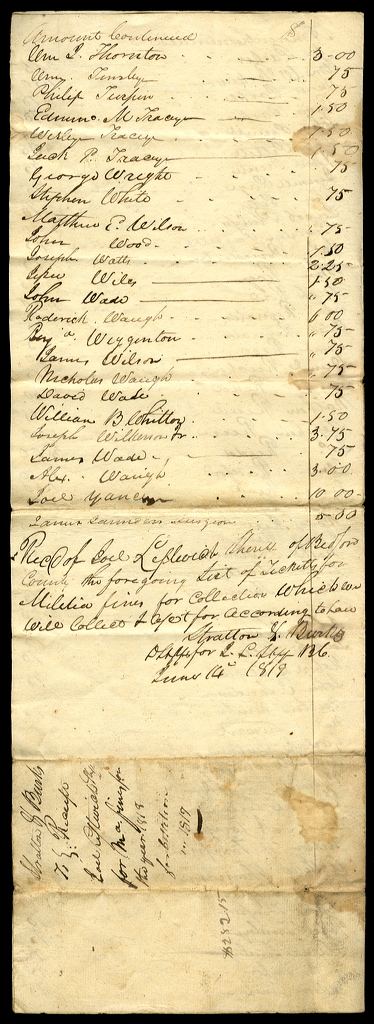 Amount Continued
Wm L. Thornton 3.00
Amy Tinsley 75
Philip Turpin 75
Edmund M Tracey 1.50
Wesley Tracey 1.50
Zack P. Tracey 1.50
George Wright 75
Stephen White 75
Matthew E. Wilson 75
John Wood 1.50
Joseph Watts 2.25
Wiles 1.50
John Wade 75
Roderick Waugh 6.00
Benja Wigginton 75
James Wilson 75
Nicholas Waugh 75
David Wade 75
William B. Whitten 1.50
Joseph Wilkerson Jr 3.75
James Wade 75
Alex. Waugh 3.00
Joel Yancey 10.00
James Saunders Surgeon 5.00
Recd of Joel Leftwich Sheriff of Bedford
County the foregoing List of Tickets for
Militia fines for Collection Which we
Will Collect & a/c for According to Law
Stratton & Burks
for J. L. Shff B.C.
June 14 1819
Stratton & Burks
Receipt
Joel Leftwich Shff
for Ma fines for
the year 1818
for collection
in 1819
$282.15